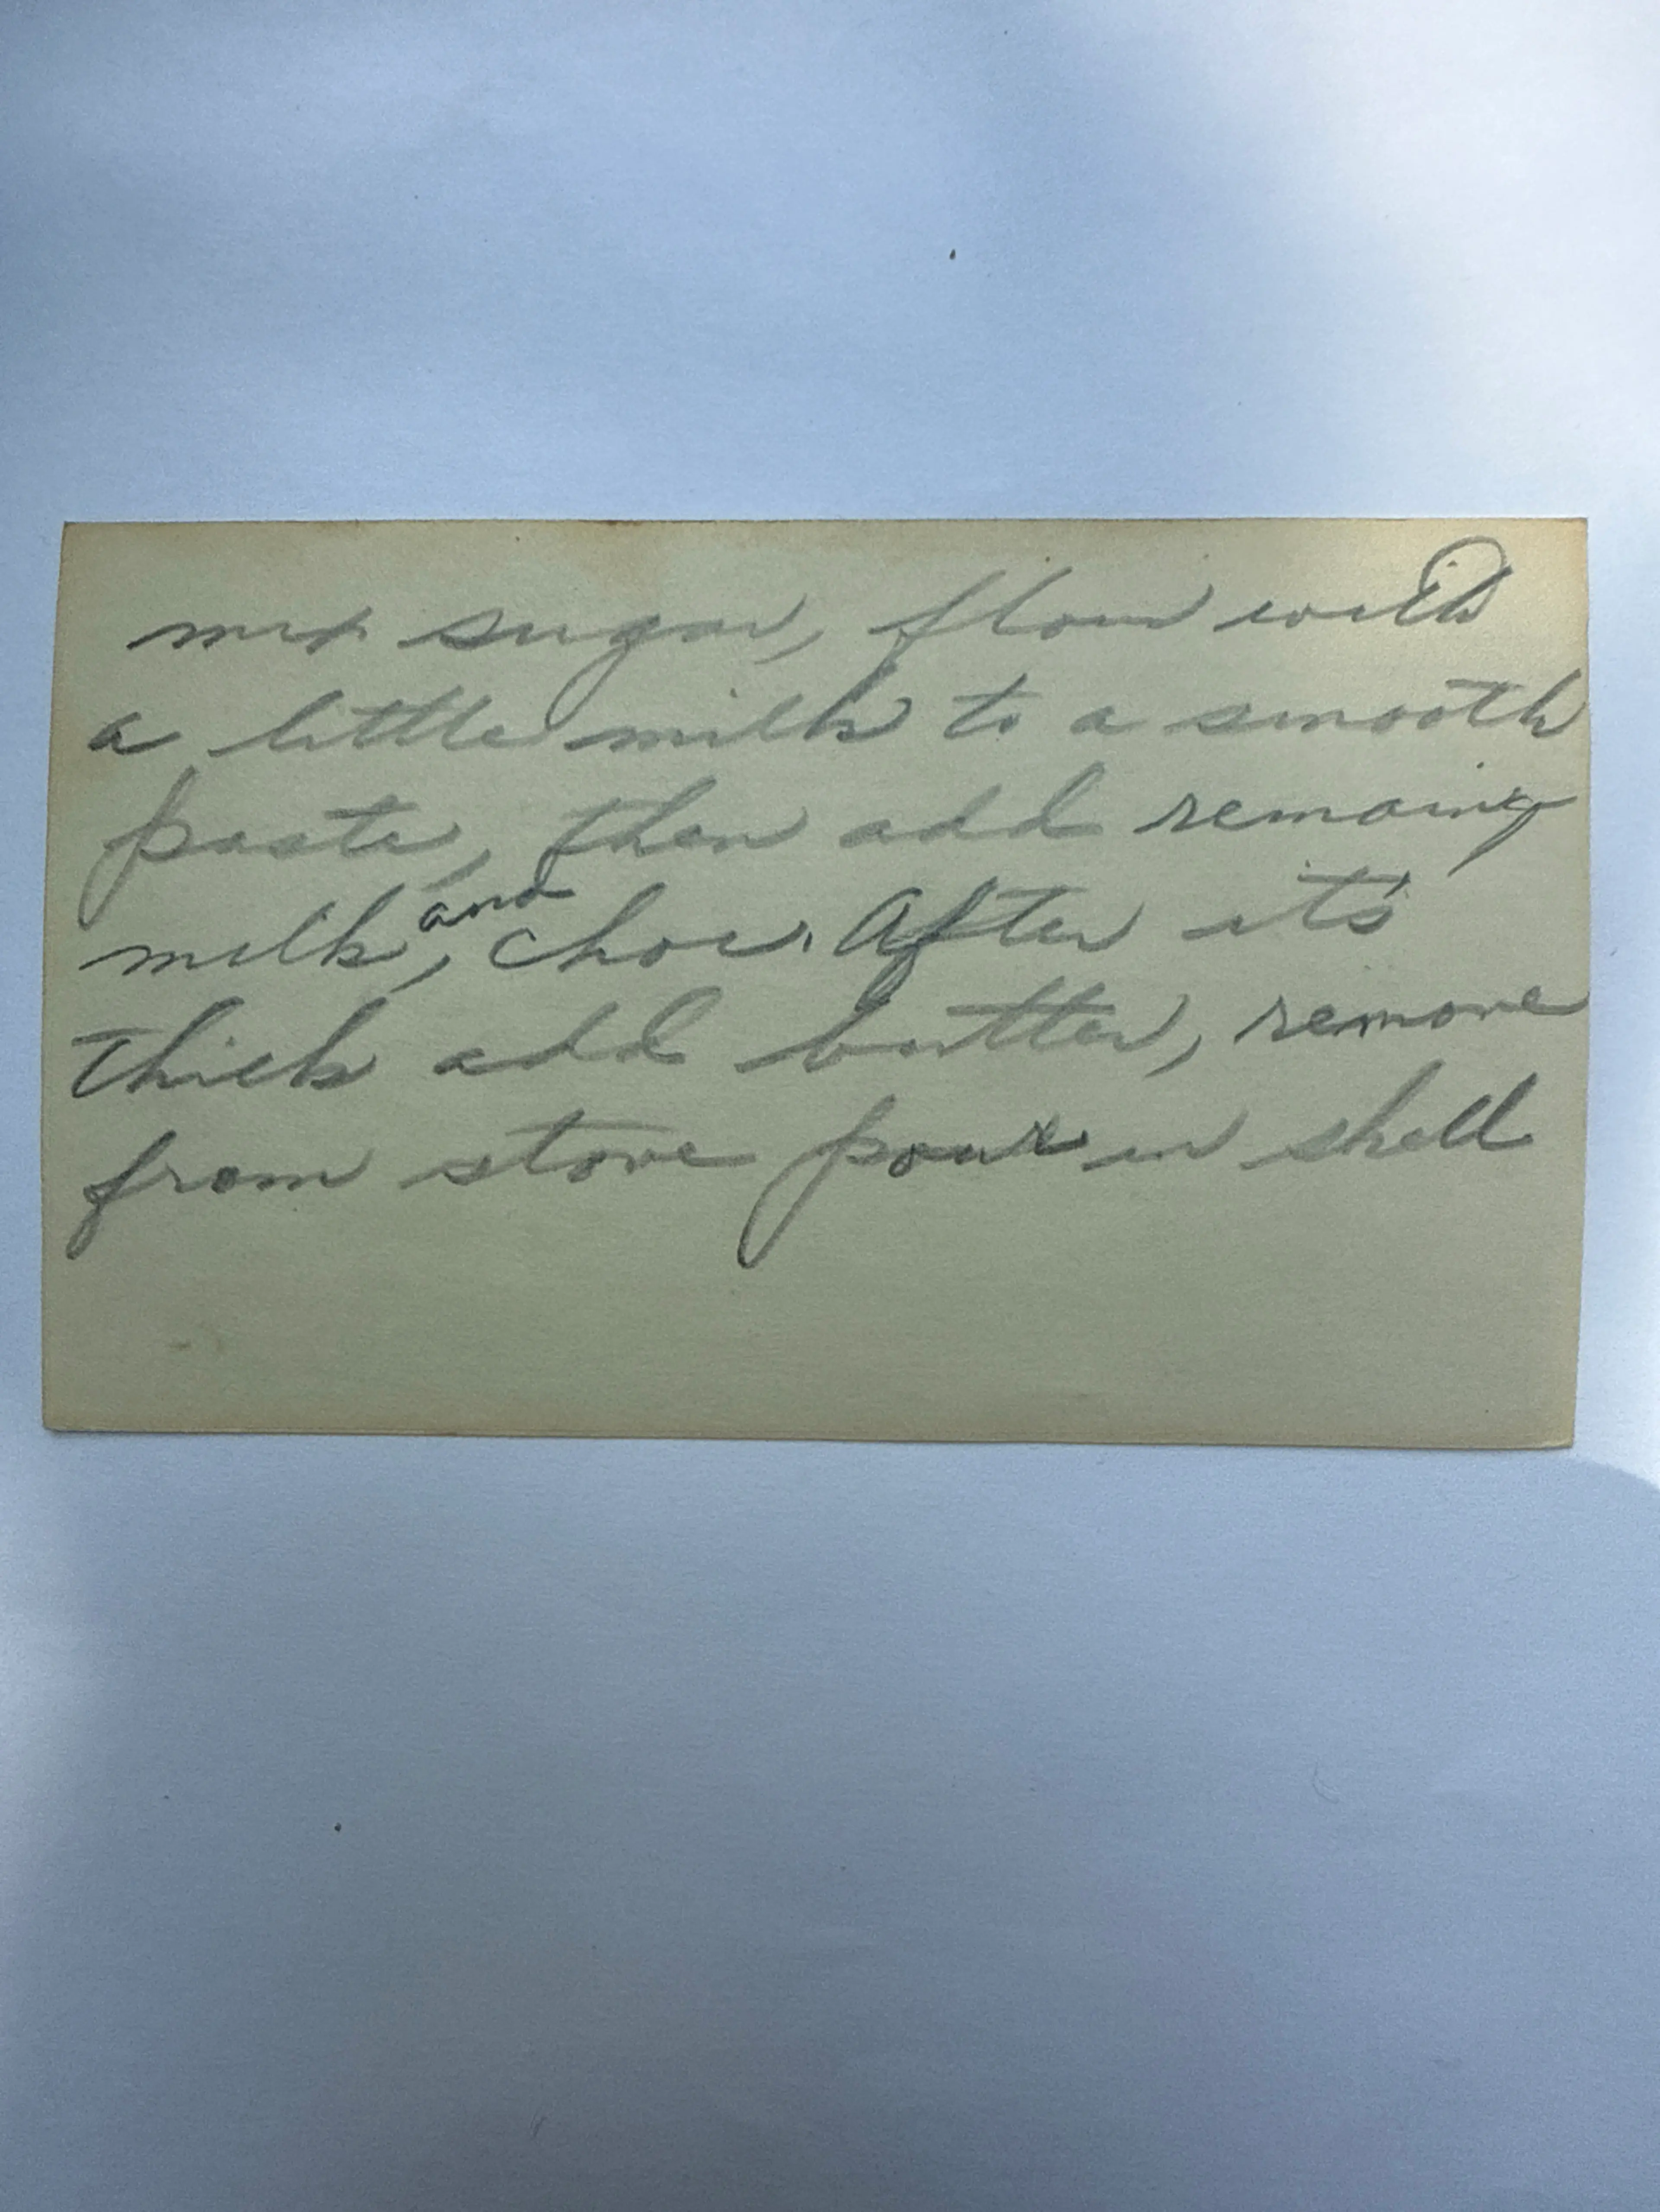 mix sugar, flour with
a little milk to a smooth
paste, then add remaing
milk, and choc. After it's
thick add butter, remove
from stove pour in shell